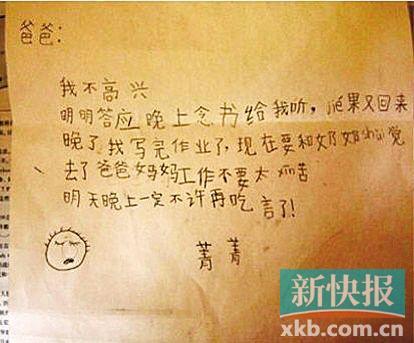 爸爸：
我不高兴
明明答应晚上念书给我听，jie果又回来
晚了，我写完作业了，现在要和奶奶shui觉
去了爸爸妈妈工作不要太 苦
明天晚上一定不许再吃言了！
菁菁
新快报
xkb.com.cn